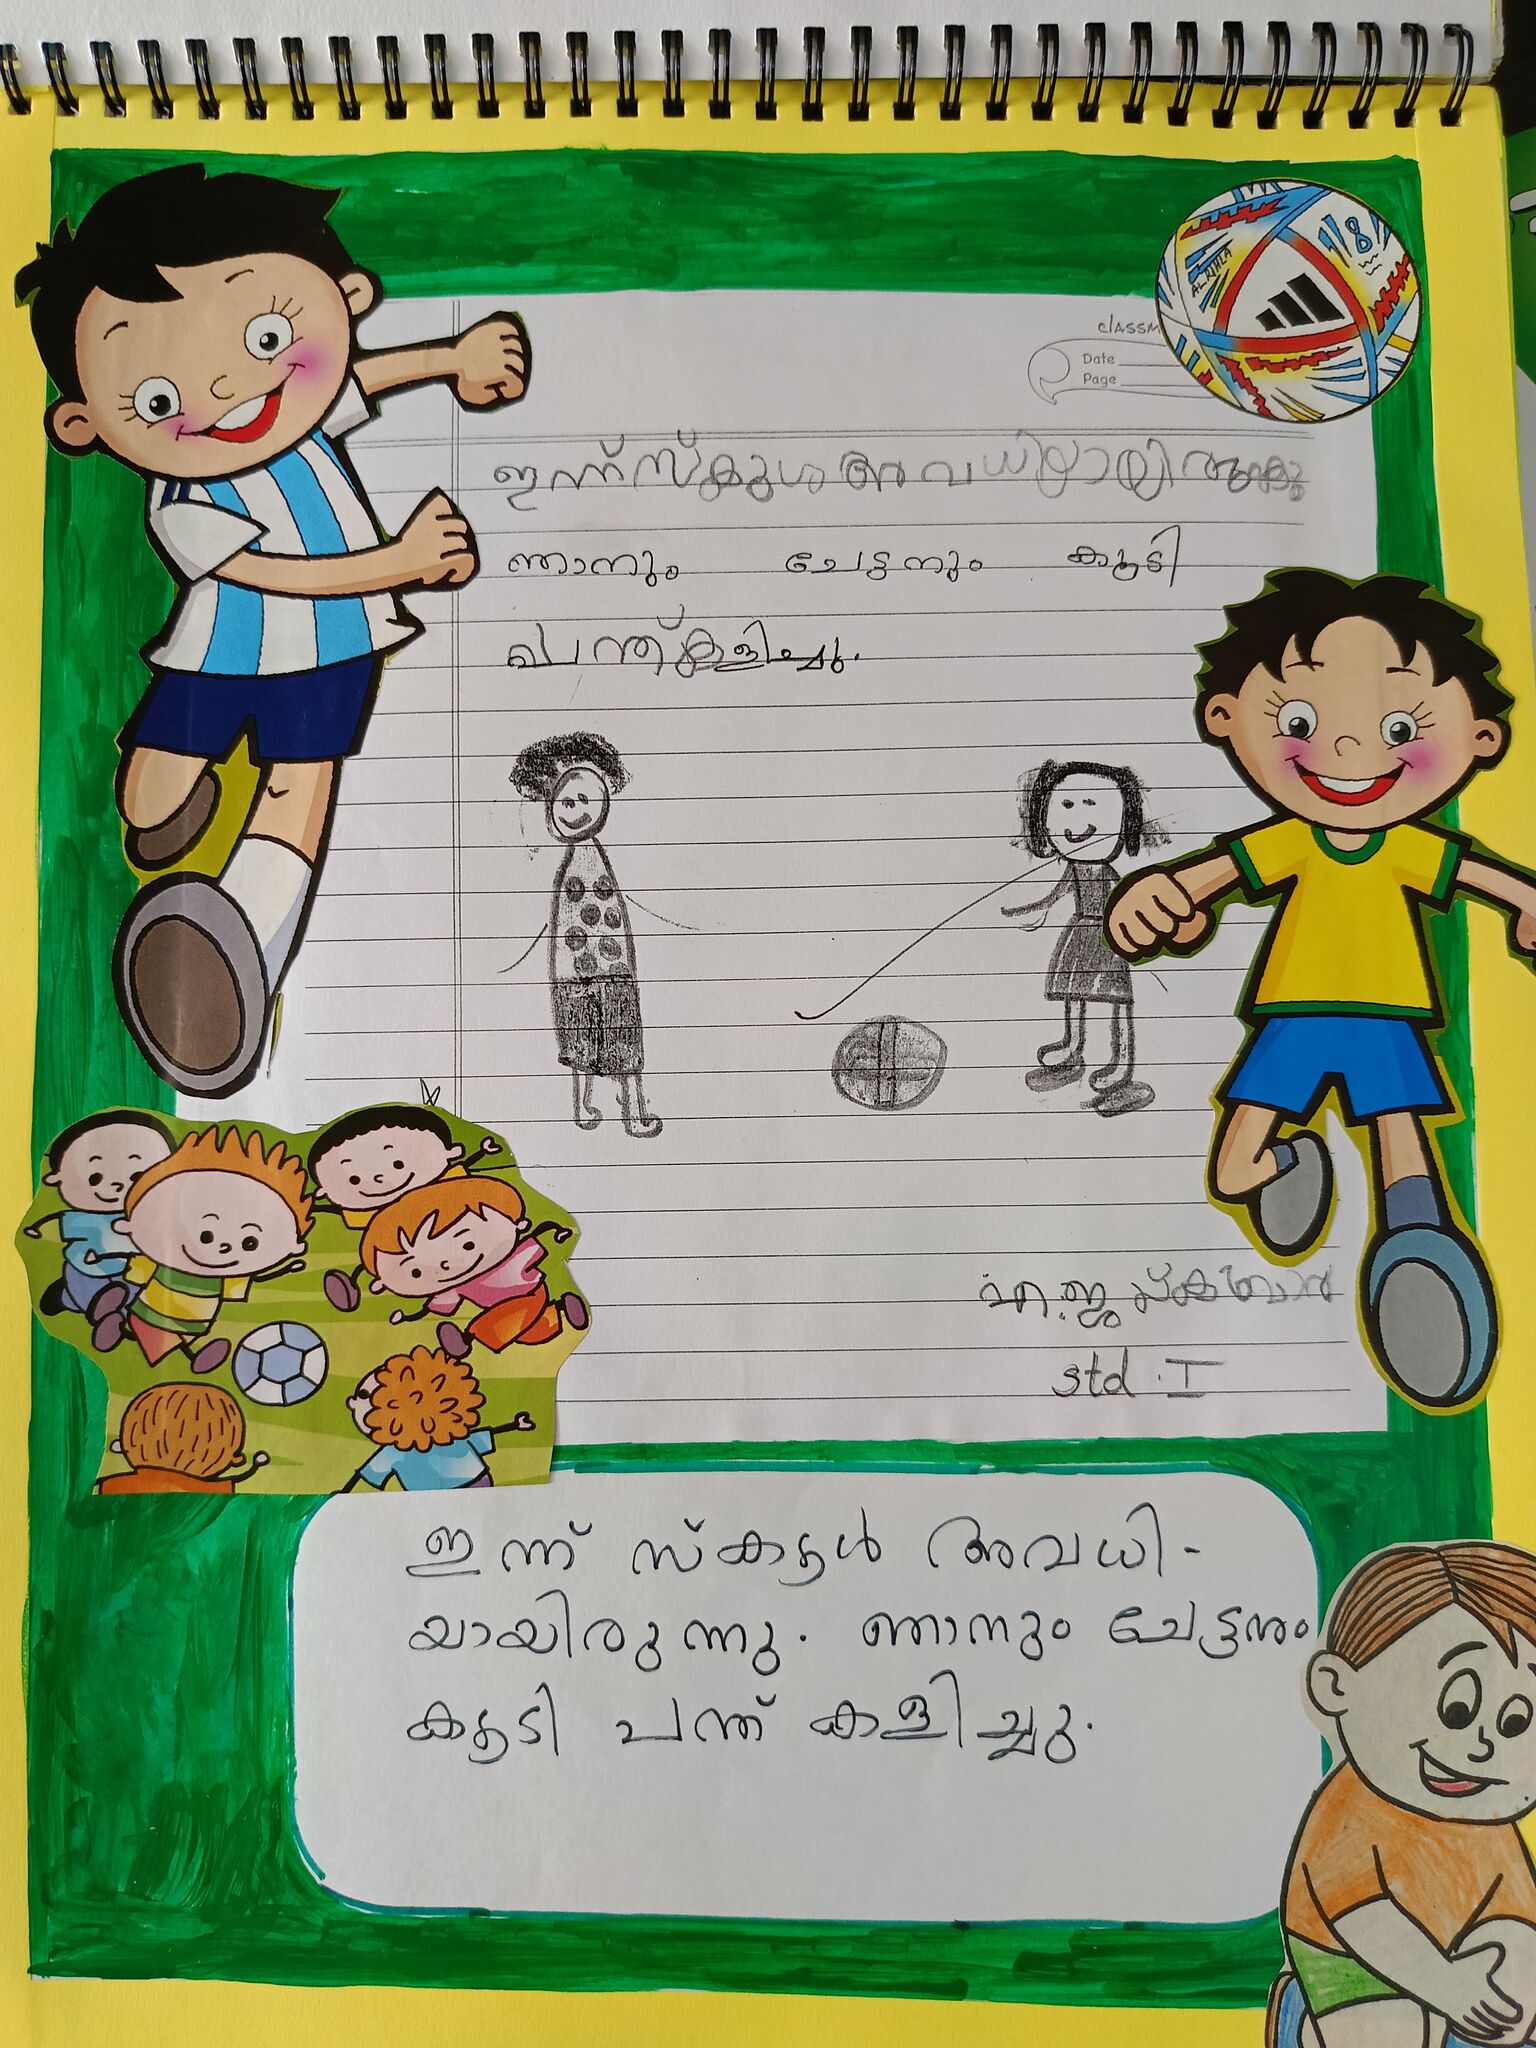 AL RIHLA
18
classm
Date
Page
ഇന്ന് സ്കൂൾ അവധിയായിരുന്നു
ഞാനും ചേട്ടനും കൂടി
പന്ത് കളിച്ചു.
std. I
ഇന്ന് സ്കൂൾ അവധി-
യായിരുന്നു. ഞാനും ചേട്ടനും
കൂടി പന്ത് കളിച്ചു.